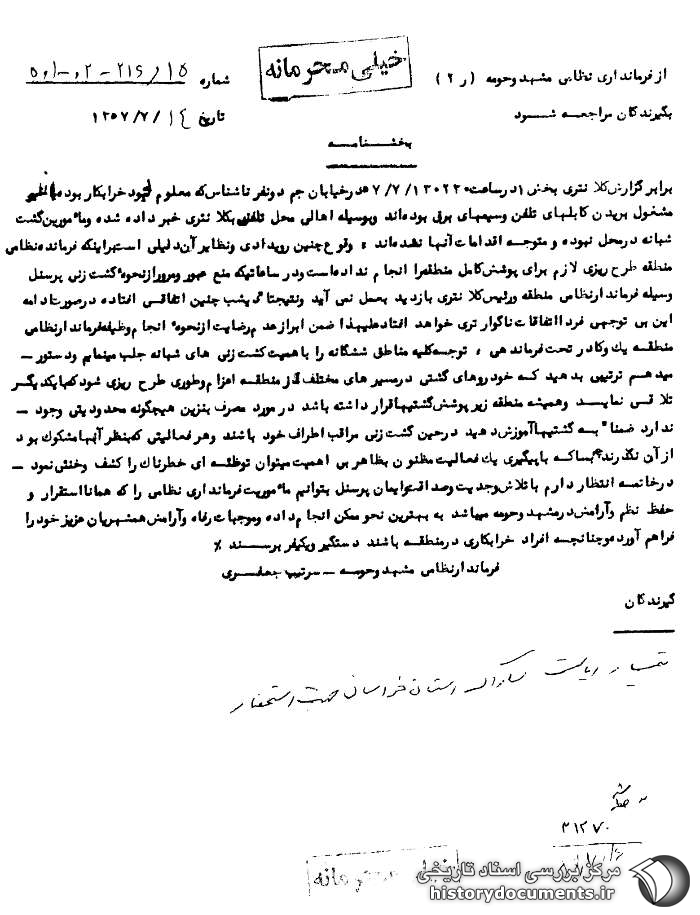 خیلی محرمانه
از فرمانداری نظامی مشهد و حومه ( ر ۲ )
شماره ۵۰۱-۰۲-۲۱۶/۱۵
بگیرندگان مراجعه شود
تاریخ ۱۳۵۷/۷/۱۴
بخشنامه
برابر گزارش کلانتری بخش ۱ در ساعت ۰۲۳۰ ۷/۷/۱۳ در خیابان جم دو نفر ناشناس که معلوم خرابکار بوده
مشغول بریدن کابلهای تلفن و سیمهای برق بوده‌اند و بوسیله اهالی محل تلفنی بکلانتری خبر داده شده و مأمورین گشت
شبانه در محل نبوده و متوجه اقدامات آنها نشده‌اند ، وقوع چنین رویدادی و نظایر آن دلیلی است بر اینکه فرمانده نظامی
منطقه طرح ریزی لازم برای پوشش کامل منطقه را انجام نداده است و در ساعاتیکه منع عبور و مرور از نحوه گشت زنی پرسنل
وسیله فرماندار نظامی منطقه و رئیس کلانتری بازدید بعمل نمی آید و نتیجتاً دیشب چنین اتفاقی افتاده در صورت ادامه
این بی توجهی فردا اتفاقات ناگوار تری خواهد افتاد علیهذا ضمن ابراز عدم رضایت از نحوه انجام وظیفه فرماندار نظامی
منطقه یک و کادر تحت فرماندهی ، توجه کلیه مناطق ششگانه را با همیت گشت زنی های شبانه جلب مینمایم و دستور –
میدهم ترتیبی بدهید که خودروهای گشتی در مسیر های مختلف از منطقه اعزام و طوری طرح ریزی شود که با یکدیگر
تلاقی نمایند و همیشه منطقه زیر پوشش گشتیها قرار داشته باشد در مورد مصرف بنزین هیچگونه محدودیتی وجود –
ندارد ضمناً به گشتیها آموزش دهید در حین گشت زنی مراقب اطراف خود باشند و هر فعالیتی که بنظر آنها مشکوک بود
از آن نگذرند چه بسا که با پیگیری یک فعالیت مظنون بظاهر بی اهمیت میتوان توطئه ای خطرناک را کشف و خنثی نمود –
در خاتمه انتظار دارم با تلاش و جدیت و صداقت و ایمان پرسنل بتوانیم مأموریت فرمانداری نظامی را که همانا استقرار و
حفظ نظم و آرامش در مشهد و حومه میباشد به بهترین نحو ممکن انجام داده و موجبات رفاه و آرامش همشهریان عزیز خود را
فراهم آورده و چنانچه افراد خرابکاری در منطقه باشند دستگیر و بکیفر برسند ٪
فرماندار نظامی مشهد و حومه – سرتیپ جعفری
گیرندگان
تیمسار ریاست ساواک استان خراسان جهت استحضار
۳۱۲۷۰
خیلی محرمانه
مرکز بررسی اسناد تاریخی
historydocuments.ir